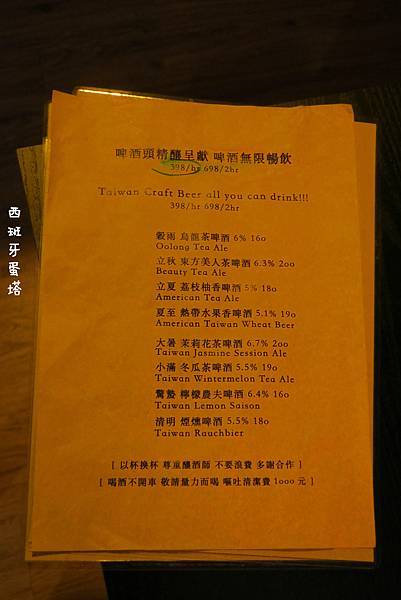 啤酒頭精釀呈獻 啤酒無限暢飲
398/hr 698/2hr
Taiwan Craft Beer all you can drink!!!
398/hr 698/2hr
穀雨 烏龍茶啤酒 6% 160
Oolong Tea Ale
立秋 東方美人茶啤酒 6.3% 200
Beauty Tea Ale
立夏 荔枝柚香啤酒 5% 180
American Tea Ale
夏至 熱帶水果香啤酒 5.1% 190
American Taiwan Wheat Beer
大暑 茉莉花茶啤酒 6.7% 200
Taiwan Jasmine Session Ale
小滿 冬瓜茶啤酒 5.5% 190
Taiwan Wintermelon Tea Ale
驚蟄 檸檬農夫啤酒 6.4% 160
Taiwan Lemon Saison
清明 煙燻啤酒 5.5% 180
Taiwan Rauchbier
[ 以杯換杯 尊重釀酒師 不要浪費 多謝合作 ]
[ 喝酒不開車 敬請量力而喝 嘔吐清潔費 1000 元 ]
西班牙蛋塔